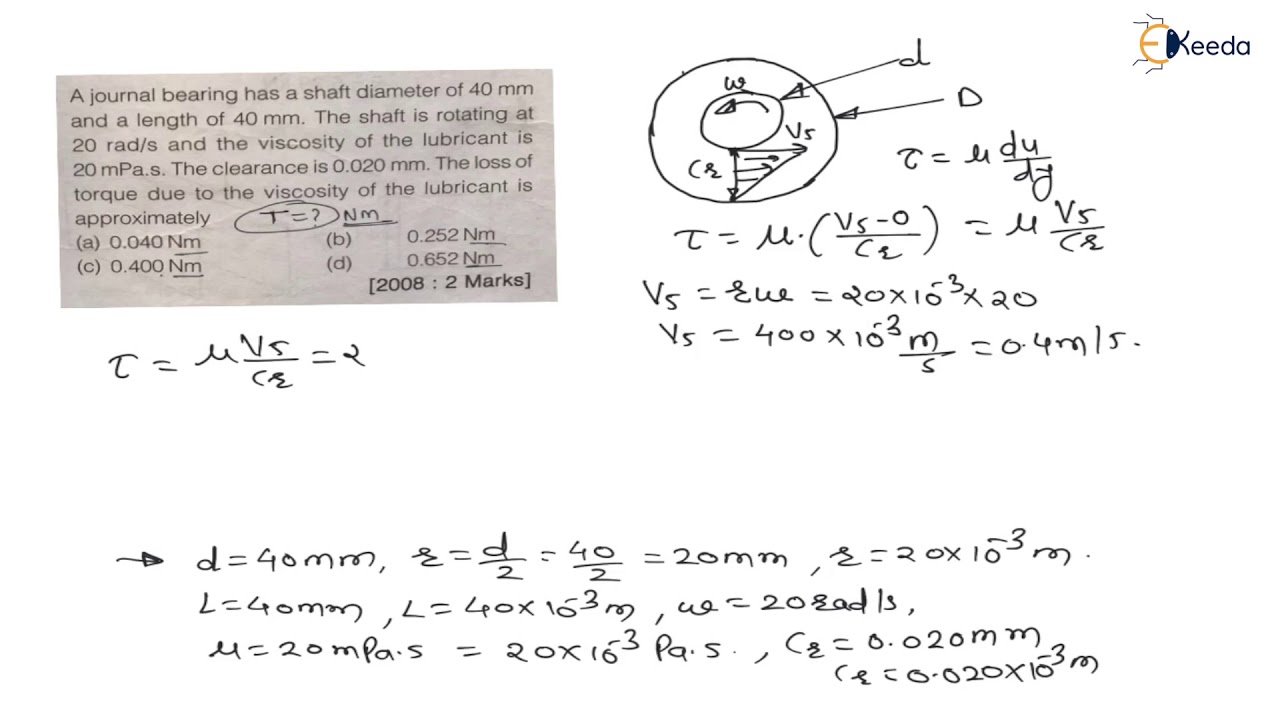 EKeeda
A journal bearing has a shaft diameter of 40 mm
and a length of 40 mm. The shaft is rotating at
20 rad/s and the viscosity of the lubricant is
20 mPa.s. The clearance is 0.020 mm. The loss of
torque due to the viscosity of the lubricant is
approximately T=? Nm
(a) 0.040 Nm (b) 0.252 Nm
(c) 0.400 Nm (d) 0.652 Nm
[2008 : 2 Marks]
d
ω
D
Vs
Cr
τ = μ du/dy
τ = μ·(Vs-0/Cr) = μ Vs/Cr
Vs = rω = 20×10⁻³×20
Vs = 400×10⁻³ m/s = 0.4m/s.
τ = μVs/Cr = 2
→ d=40mm, r=d/2=40/2=20mm, r=20×10⁻³m.
L=40mm, L=40×10⁻³m, ω=20rad/s,
μ=20mPa.s = 20×10⁻³ Pa.s., Cr=0.020mm
Cr=0.020×10⁻³m